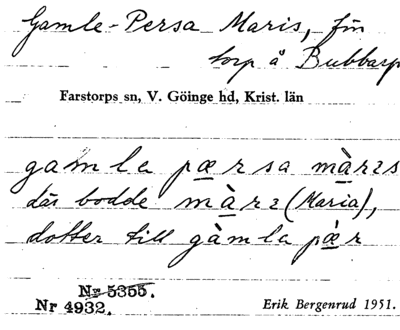 Gamle-Persa Maris, f.n
torp å Bubbarp
Farstorps sn, V. Göinge hd, Krist. län
gamla pærsa màrɪs
där bodde màrɪ (Maria),
dotter till gàmla pær
Nr 5355.
Nr 4932.
Erik Bergenrud 1951.